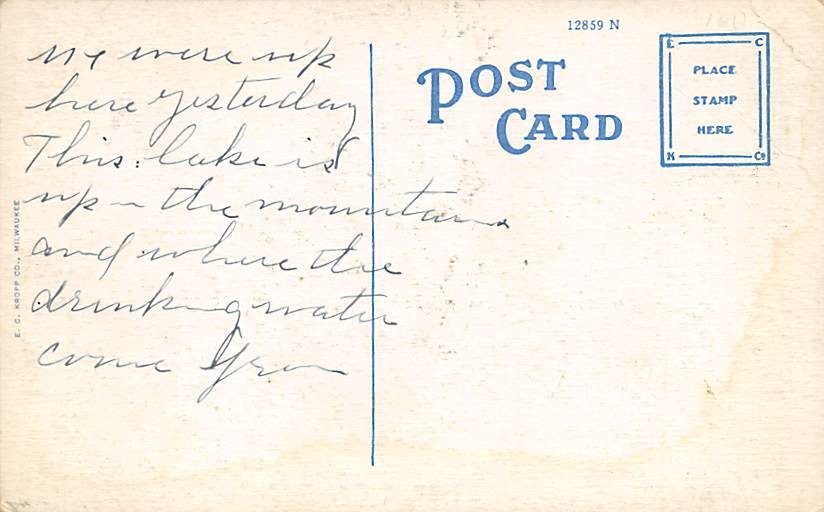 we were up
here yesterday
This lake is
up in the mountains
and where the
drinking water
come from
12859 N
POST
CARD
E C
PLACE
STAMP
HERE
K Co
E. C. KROPP CO., MILWAUKEE